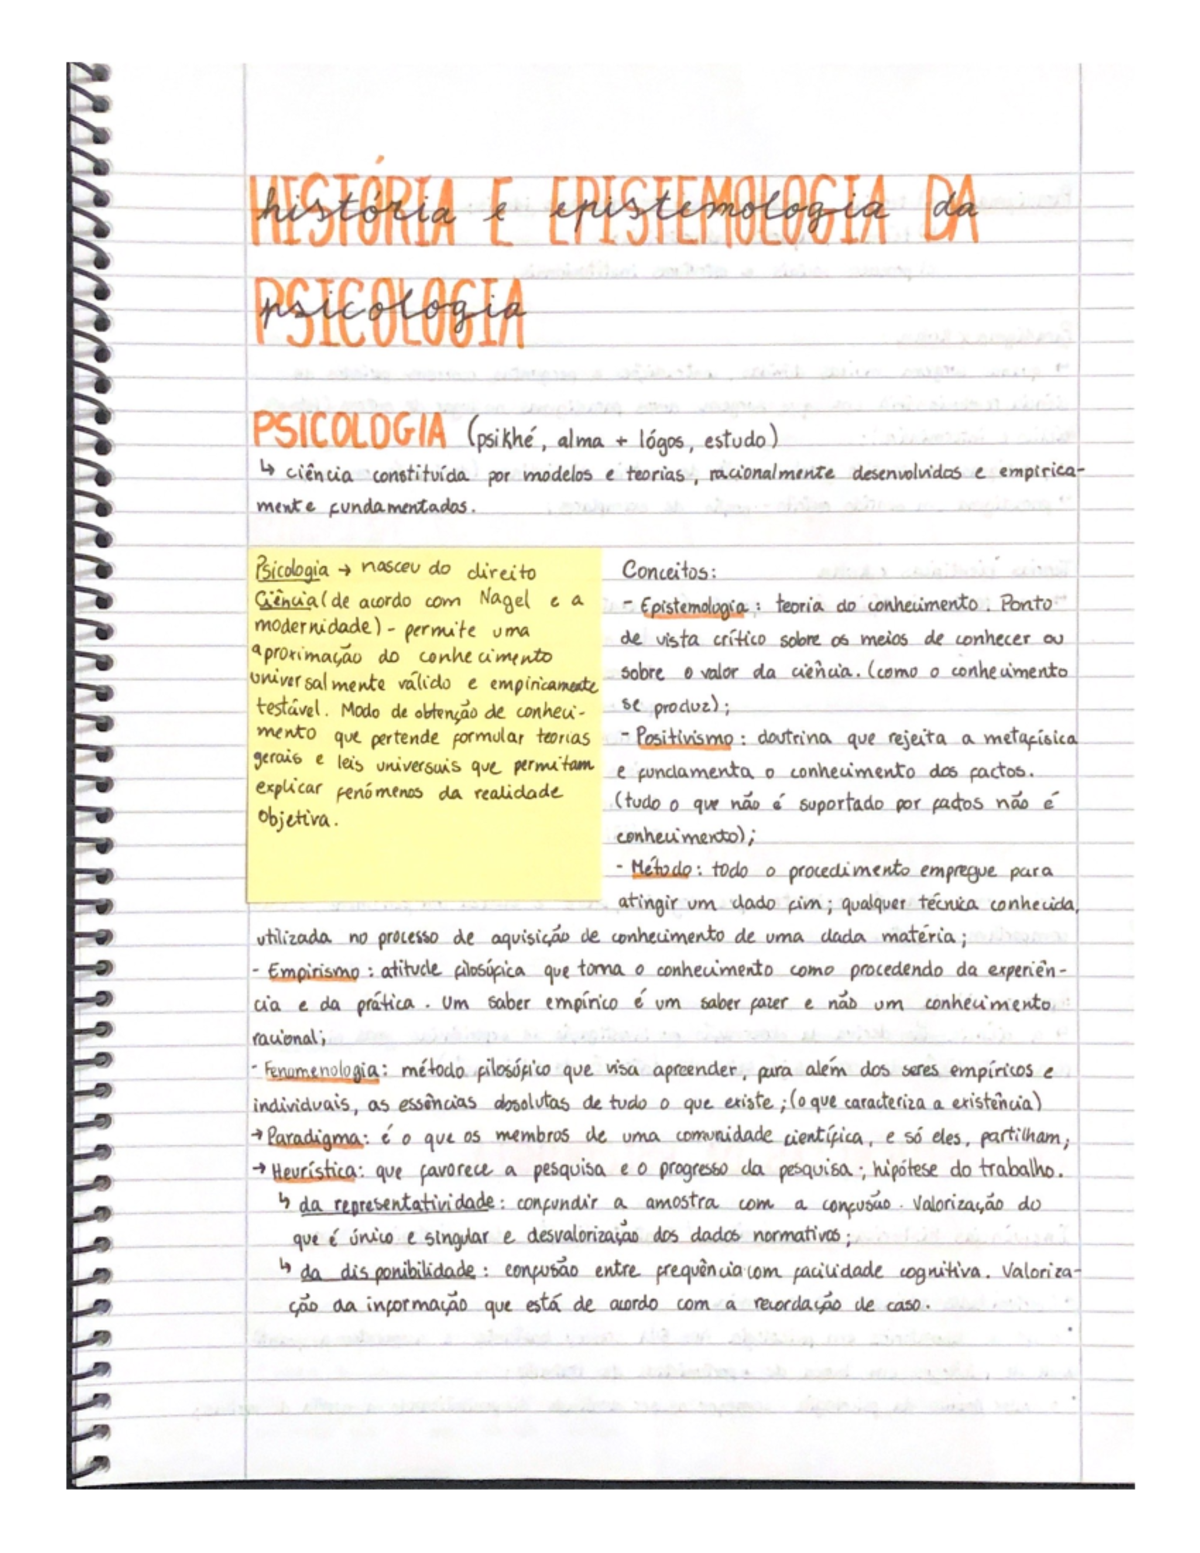 HISTÓRIA E EPISTEMOLOGIA DA
história e epistemologia da
PSICOLOGIA
psicologia
PSICOLOGIA (psikhé, alma + lógos, estudo)
↳ ciência constituída por modelos e teorias, racionalmente desenvolvidos e empirica-
mente fundamentados.
Psicologia → nasceu do direito
Ciência (de acordo com Nagel e a
modernidade) - permite uma
aproximação do conhecimento
universalmente válido e empiricamente
testável. Modo de obtenção de conheci-
mento que pertende formular teorias
gerais e leis universais que permitam
explicar fenómenos da realidade
objetiva.
Conceitos:
- Epistemologia: teoria do conhecimento. Ponto
de vista crítico sobre os meios de conhecer ou
sobre o valor da ciência. (como o conhecimento
se produz);
- Positivismo: doutrina que rejeita a metafísica
e fundamenta o conhecimento dos factos.
(tudo o que não é suportado por factos não é
conhecimento);
- Método: todo o procedimento empregue para
atingir um dado fim; qualquer técnica conhecida,
utilizada no processo de aquisição de conhecimento de uma dada matéria;
- Empirismo: atitude filosófica que toma o conhecimento como procedendo da experiên-
cia e da prática. Um saber empírico é um saber fazer e não um conhecimento
racional;
- Fenomenologia: método filosófico que visa apreender, para além dos seres empíricos e
individuais, as essências absolutas de tudo o que existe; (o que caracteriza a existência)
→ Paradigma: é o que os membros de uma comunidade científica, e só eles, partilham;
→ Heurística: que favorece a pesquisa e o progresso da pesquisa; hipótese do trabalho.
↳ da representatividade: confundir a amostra com a confusão. Valorização do
que é único e singular e desvalorização dos dados normativos;
↳ da disponibilidade: confusão entre frequência com facilidade cognitiva. Valoriza-
ção da informação que está de acordo com a recordação de caso.